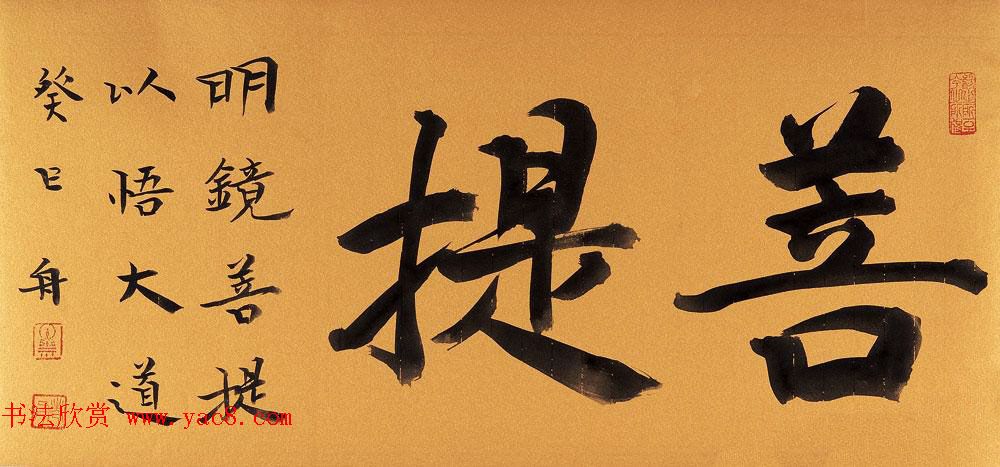 菩提
明鏡菩提
以悟大道
癸巳舟
书法欣赏 www.yac8.com